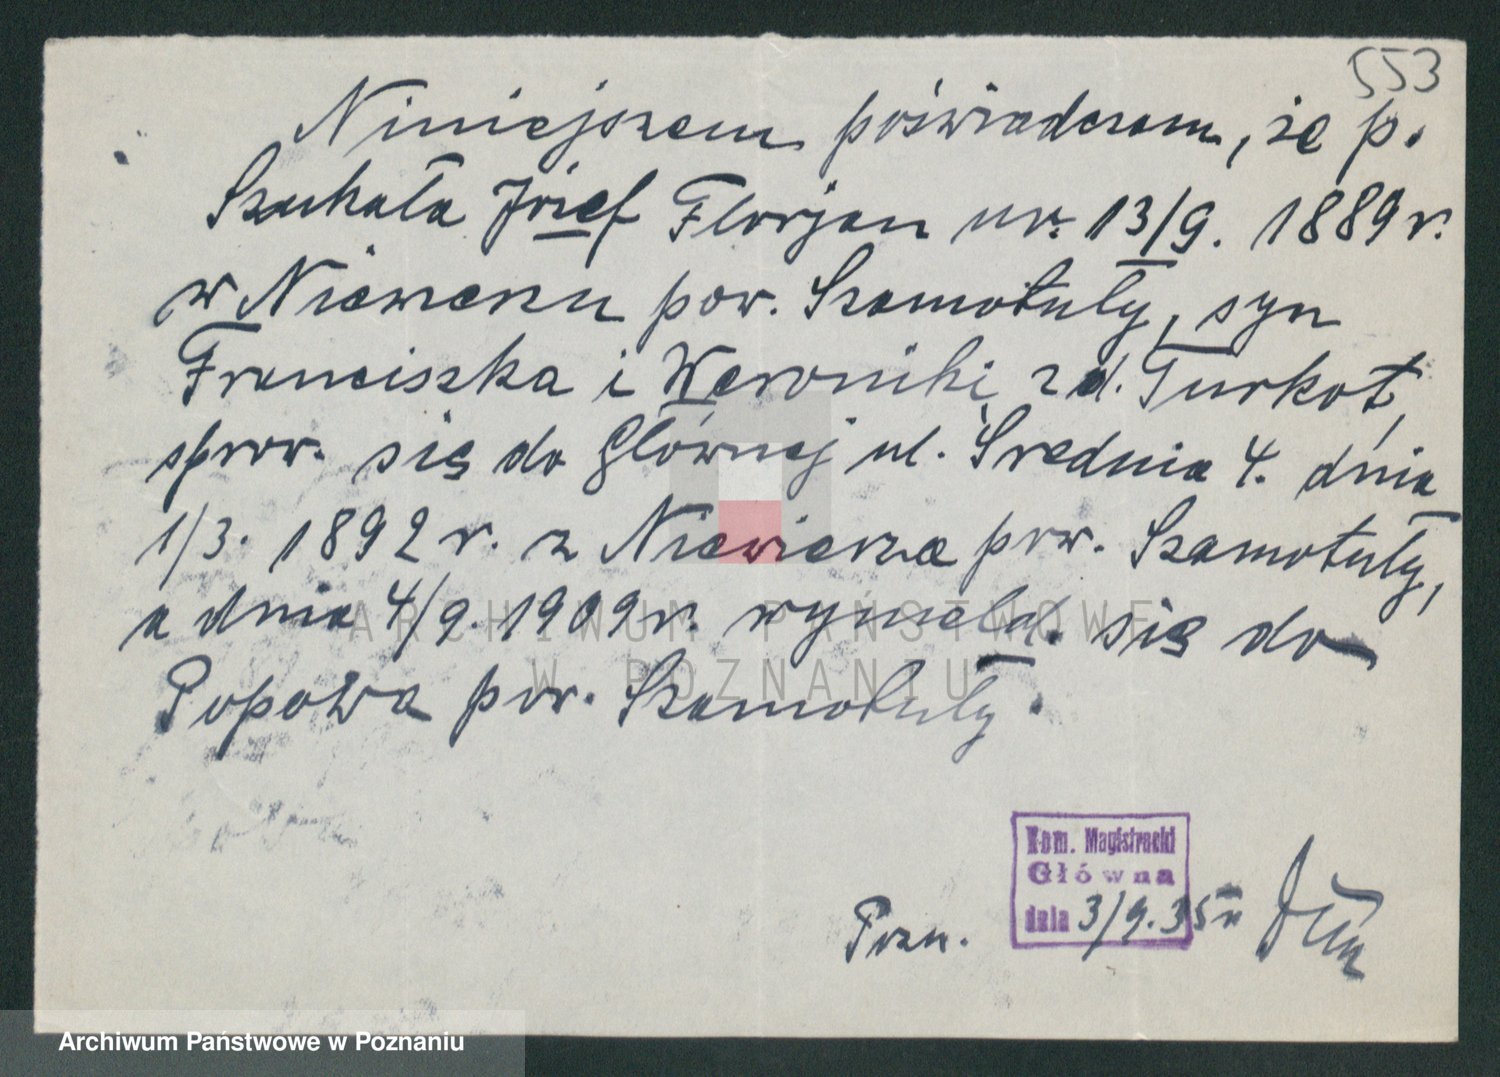 553
Niniejszem poświadczam, że p.
Szukała Józef Florjan ur. 13/9. 1889 r.
w Niewierzu pow. Szamotuły, syn
Franciszka i Weroniki z d. Turkot,
sprow. się do Głównej ul. Średnia 4. dnia
1/3. 1892 r. z Niewierza pow. Szamotuły,
a dnia 4/9. 1909 r. wymeld. się do
Popowa pow. Szamotuły.
Kom. Magistracki
Główna
dnia 3/9. 35
Pozn.
ARCHIWUM PAŃSTWOWE
W POZNANIU
Archiwum Państwowe w Poznaniu